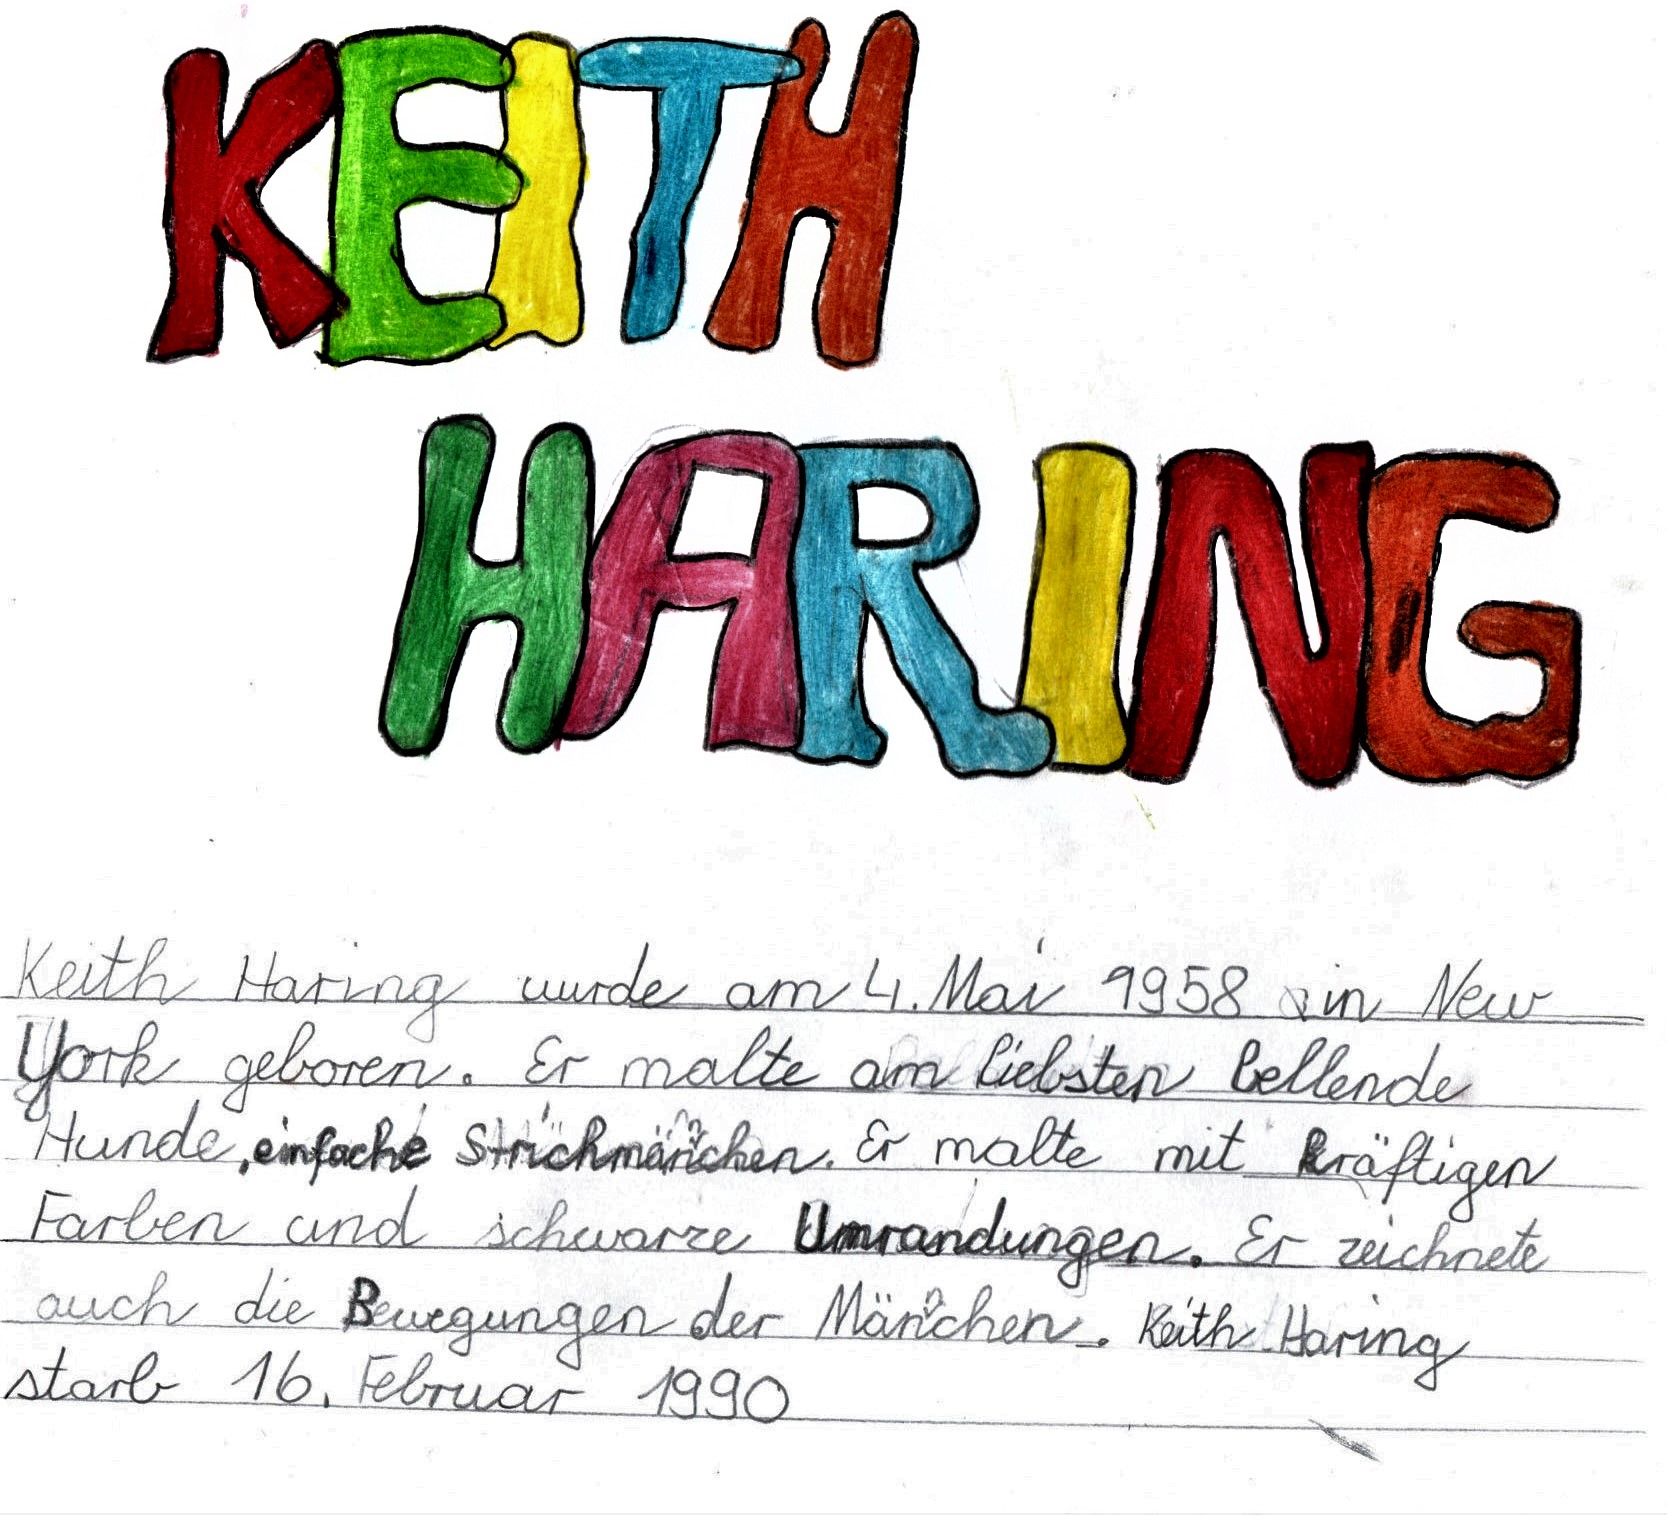 KEITH
HARING
Keith Haring wurde am 4. Mai 1958 in New
York geboren. Er malte am liebsten bellende
Hunde, einfache Strichmännchen. Er malte mit kräftigen
Farben und schwarze Umrandungen. Er zeichnete
auch die Bewegungen der Männchen. Keith Haring
starb 16. Februar 1990